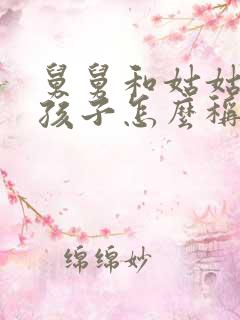 舅舅和姑姑
孩子怎麼稱
绵绵妙